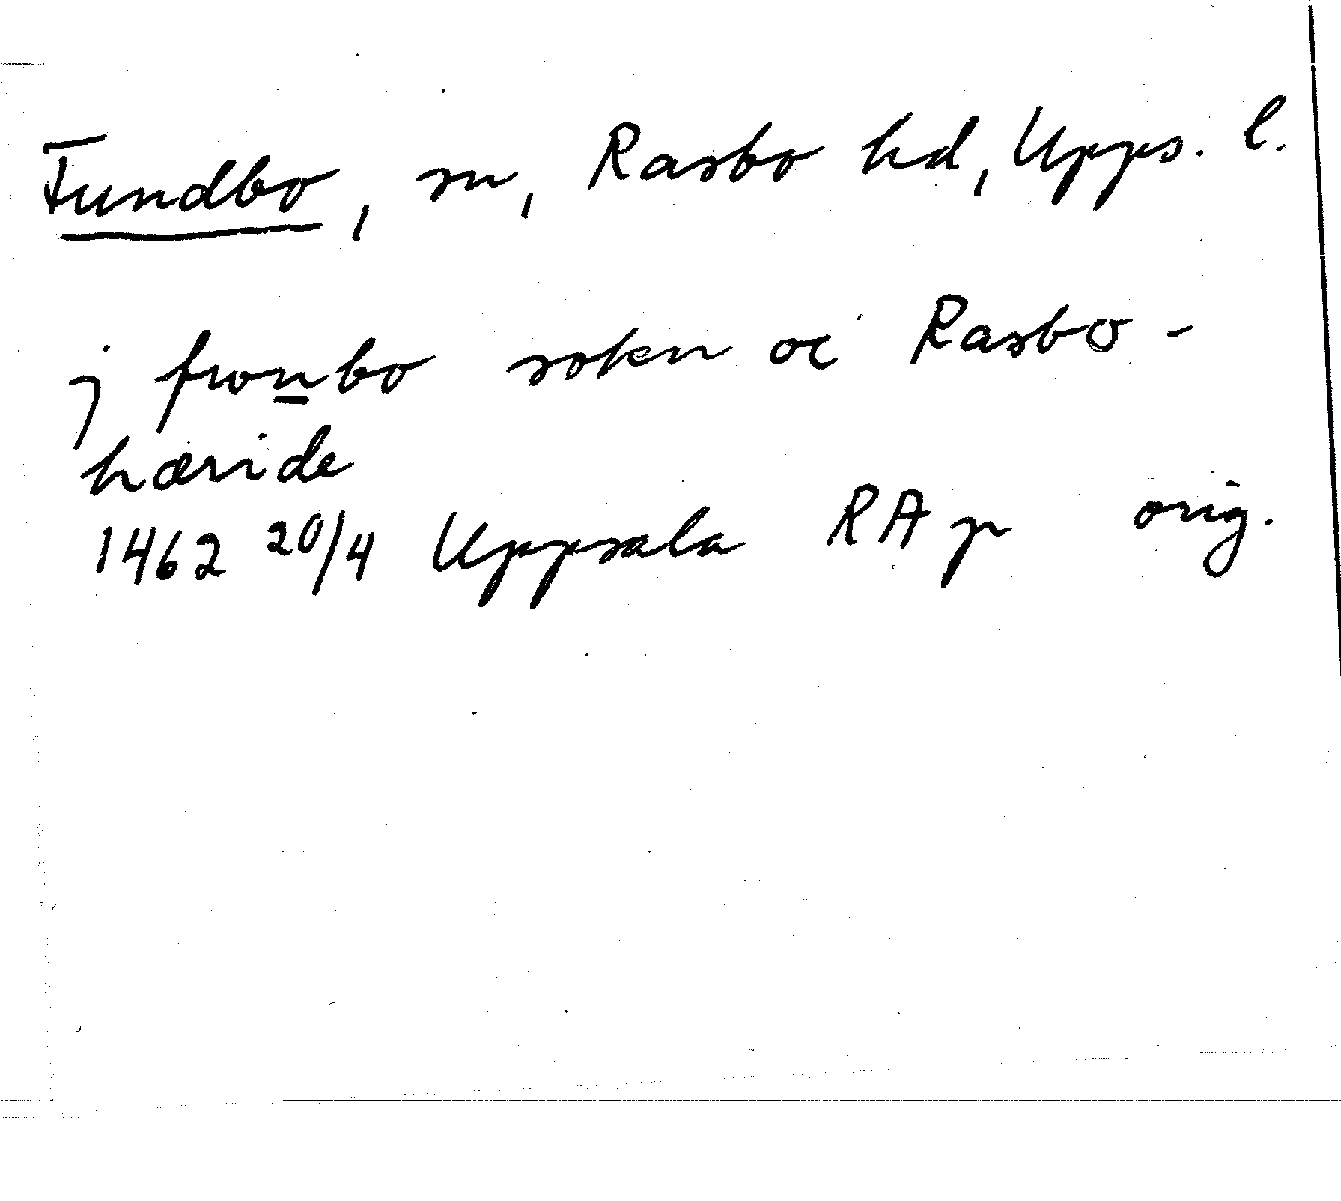 Fundbo, sn, Rasbo hd, Upps. l.
j fwonbo soken oc Rasbo-
hæride
1462 20/4 Uppsala RAp orig.